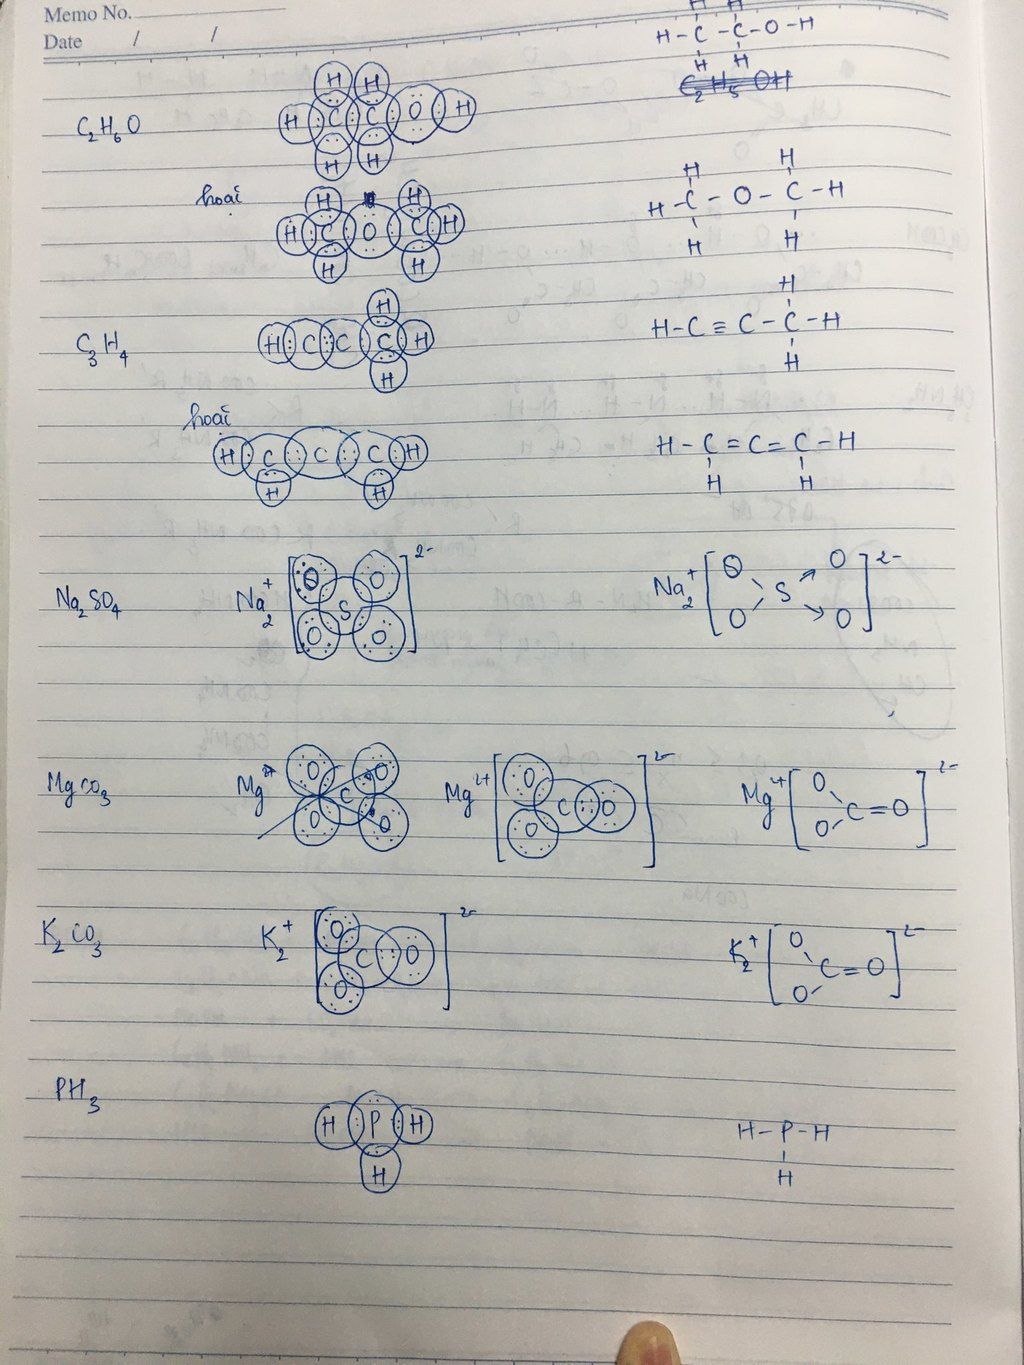 Memo No.
Date / /
C2H6O H H H C C O H H H
H H
H-C-C-O-H
H H
C2H5OH
hoặc H H H C O C H H H
H H
H-C-O-C-H
H H
C3H4 H H C C C H H
H
H-C≡C-C-H
H
hoặc H C C C H H H
H-C=C=C-H
H H
Na2SO4 Na2+ [O O S O O]2- Na2+ [O O S O O]2-
MgCO3 Mg2+ O O C O O Mg2+ [O C O O]2- Mg2+ [O O C=O]2-
K2CO3 K2+ [O C O O]2- K2+ [O O C=O]2-
PH3 H P H H
H-P-H
H